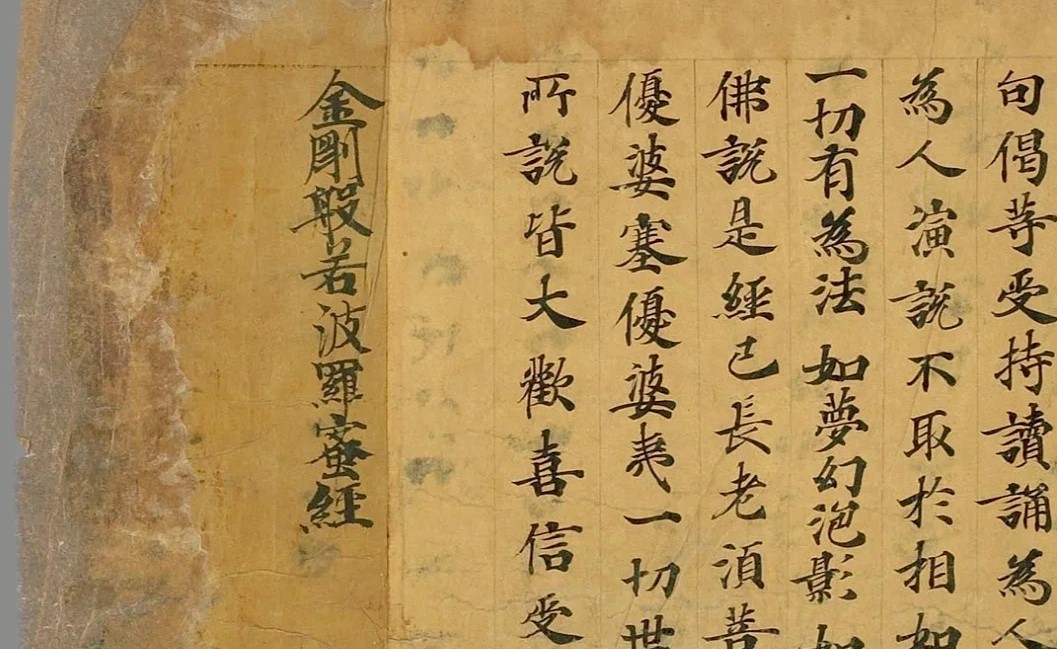 句偈等受持讀誦為人
為人演說不取於相如
一切有為法如夢幻泡影如
佛說是經已長老須菩
優婆塞優婆夷一切世
所說皆大歡喜信受
金剛般若波羅蜜經